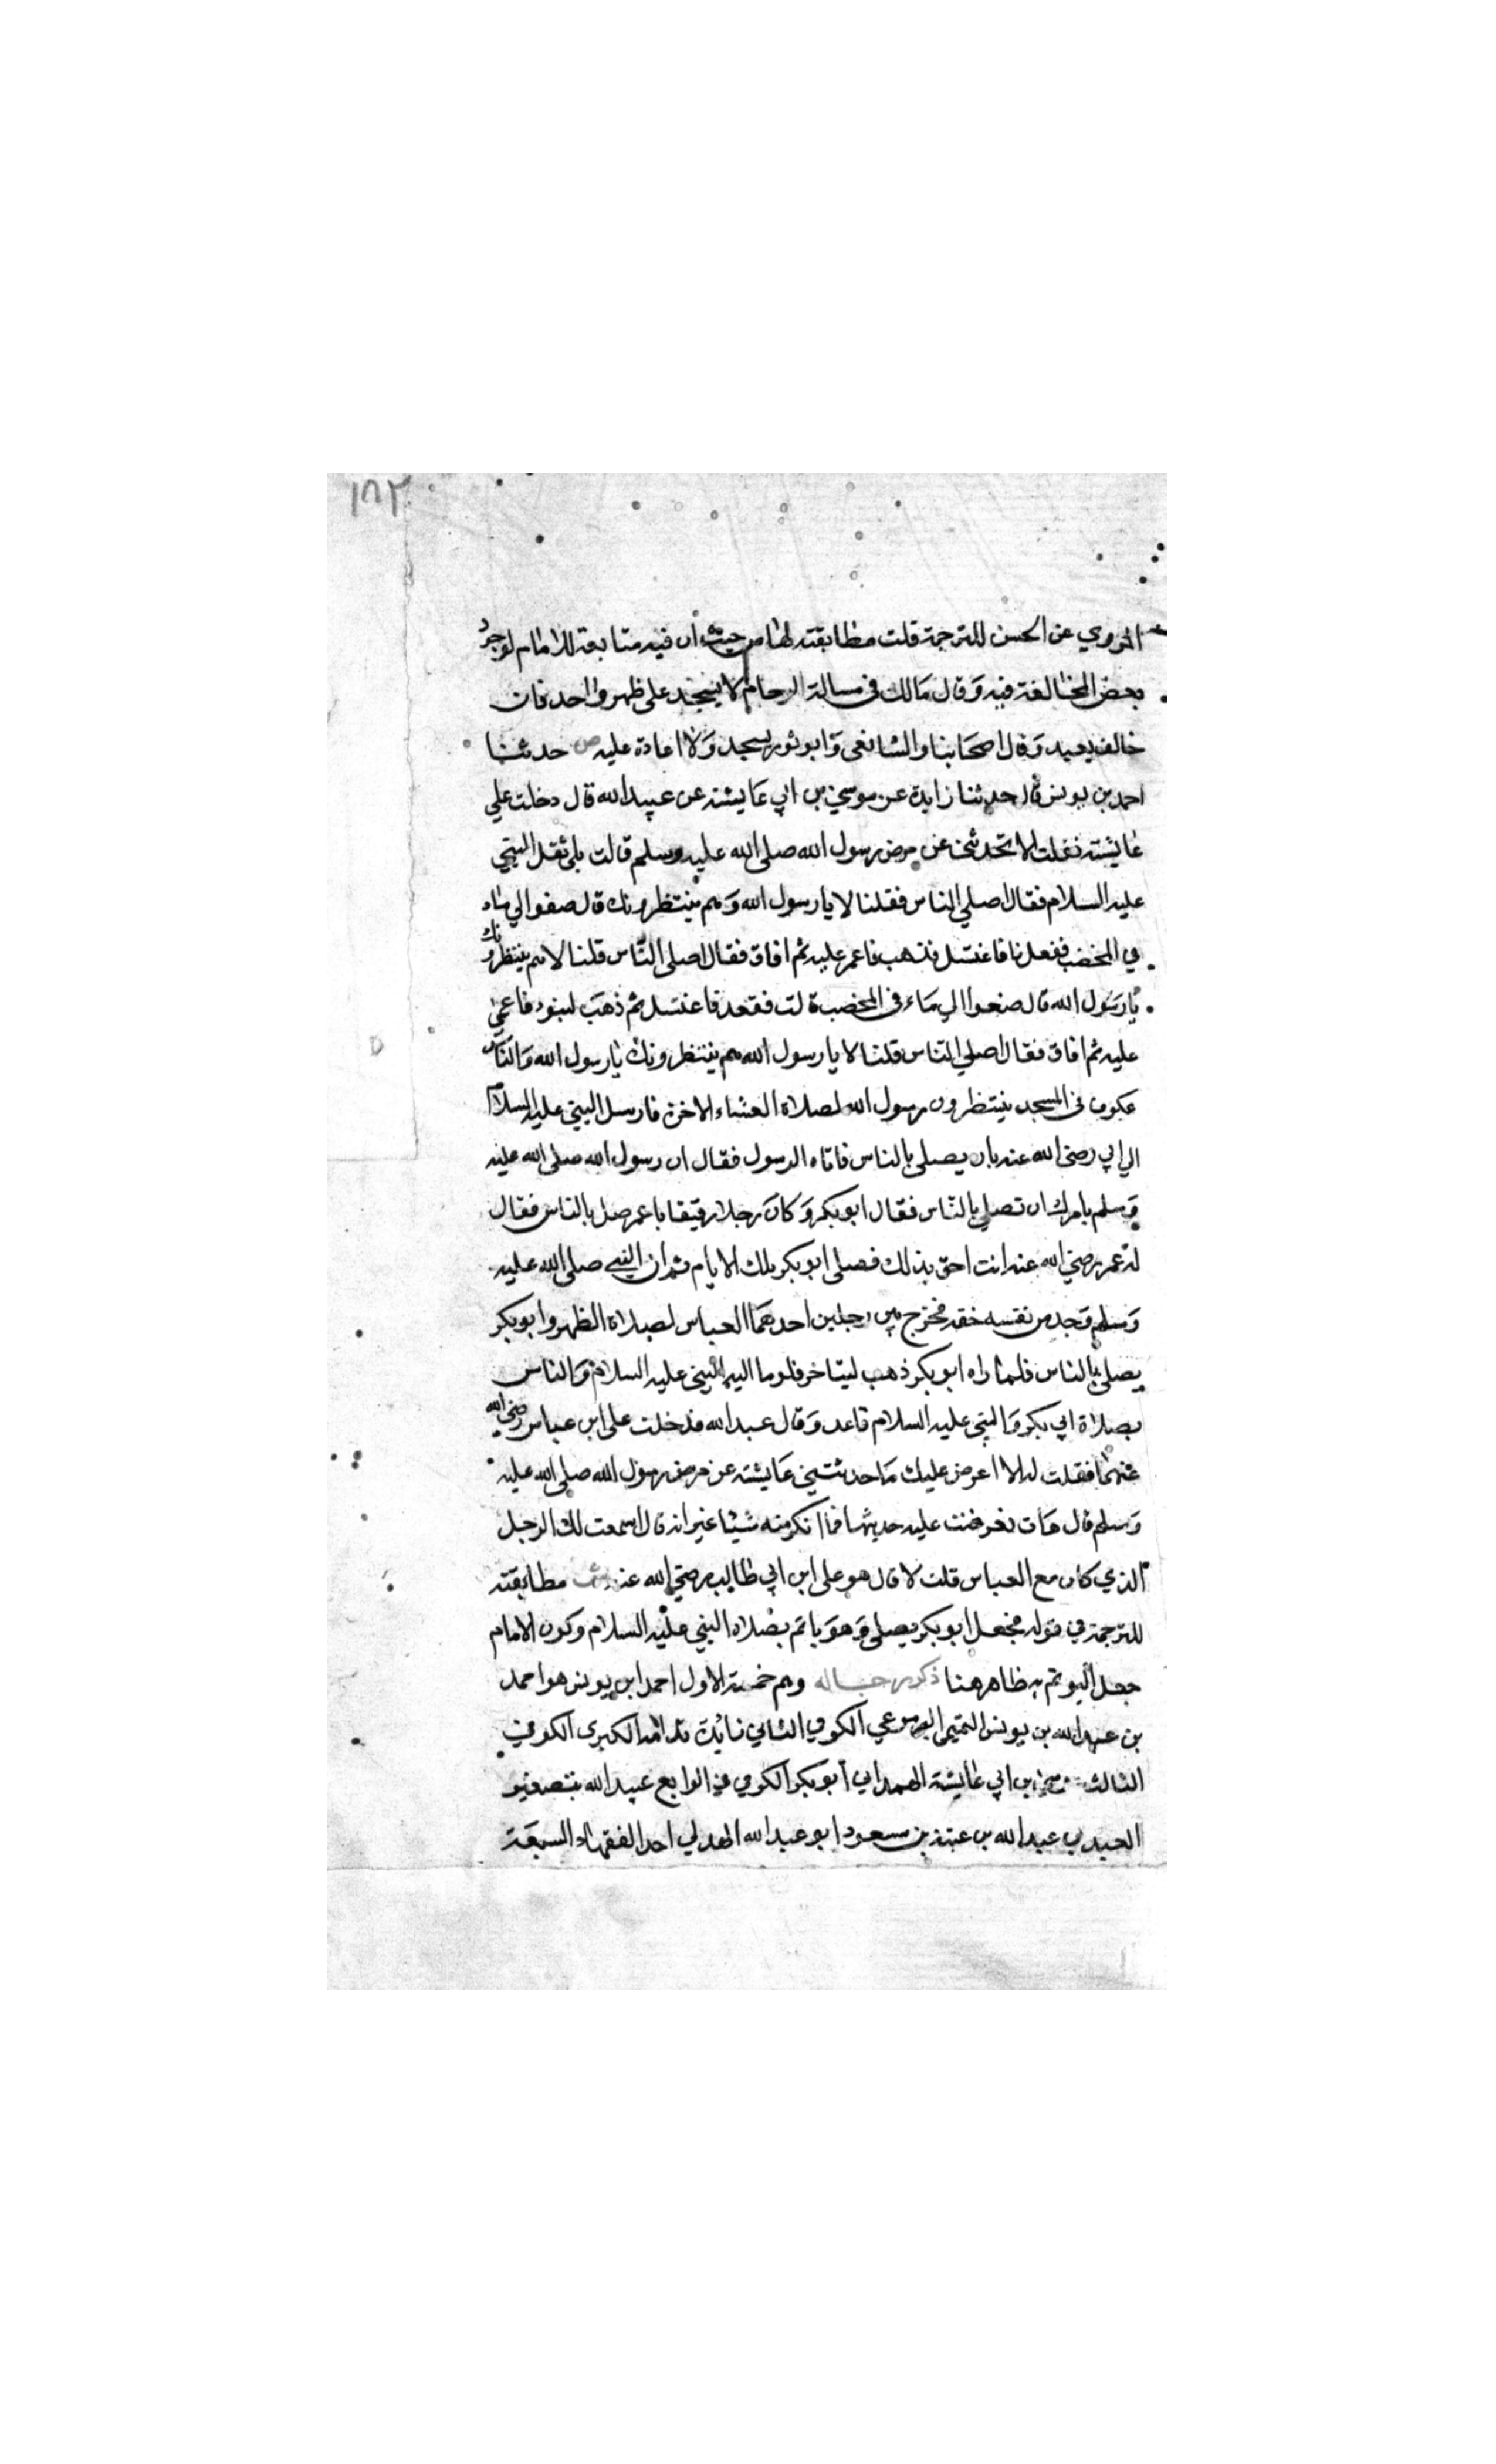 ١٨٢
المروي عن الحسن للترجمة قلت مطابقته لها من حيث ان فيه متابعة للامام لوجود
بعض المخالفة فيه وقال مالك في مسالة الزحام لا يسجد على ظهر واحد فان
خالف يعيد وقال اصحابنا والشافعي وابو ثور يسجد ولا اعادة عليه ص حدثنا
احمد بن يونس قال حدثنا زايدة عن موسي بن ابي عايشة عن عبيد الله قال دخلت علي
عايشة فقلت الا تحدثني عن مرض رسول الله صلى الله عليه وسلم قالت بلي ثقل النبي
عليه السلام فقال اصلي الناس فقلنا لا يا رسول الله وهم ينتظرونك قال ضعوا لي ماء
في المخضب ففعلنا فاغتسل فذهب فاغمي عليه ثم افاق فقال اصلى الناس قلنا لا هم ينتظرونك
يا رسول الله قال ضعوا لي ماء في المخضب قالت فقعد فاغتسل ثم ذهب لينوء فاغمي
عليه ثم افاق فقال اصلي الناس قلنا لا يا رسول الله هم ينتظرونك يا رسول الله والناس
عكوف في المسجد ينتظرون رسول الله لصلاة العشاء الاخرة فارسل النبي عليه السلام
الي ابي رضي الله عنه بان يصلى بالناس فاتاه الرسول فقال ان رسول الله صلى الله عليه
وسلم يامرك ان تصلي بالناس فقال ابو بكر وكان رجلا رقيقا يا عمر صل بالناس فقال
له عمر رضي الله عنه انت احق بذلك فصلى ابو بكر تلك الايام ثم ان النبي صلى الله عليه
وسلم وجد من نفسه خفة فخرج بين رجلين احدهما العباس لصلاة الظهر وابو بكر
يصلى بالناس فلما راه ابو بكر ذهب ليتاخر فاوما اليه النبي عليه السلام والناس
بصلاة ابي بكر والنبي عليه السلام قاعد وقال عبد الله فدخلت على ابن عباس رضي الله
عنهما فقلت له الا اعرض عليك ما حدثتني عايشة عن مرض رسول الله صلى الله عليه
وسلم قال هات فعرضت عليه حديثها فما انكر منه شيئا غير انه قال اسمت لك الرجل
الذي كان مع العباس قلت لا قال هو على ابن ابي طالب رضي الله عنه مطابقته
للترجمة في قوله فجعل ابو بكر يصلي وهو ياتم بصلاة النبي عليه السلام وكون الامام
جعل ليوتم به ظاهر هنا ذكر رجاله وهم خمسة الاول احمد ابن يونس هو احمد
بن عبد الله بن يونس التميمي اليربوعي الكوفي الثاني زائدة بن قدامة البكري الكوفي
الثالث موسى ابن ابي عايشة الهمداني ابو بكر الكوفي الرابع عبيد الله بتصغير
العبد بن عبد الله بن عتبة بن مسعود ابو عبد الله الهذلي احد الفقهاء السبعة